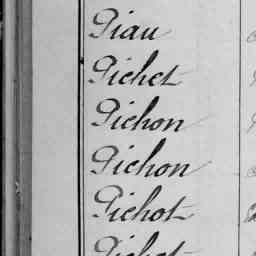 Piau
Pichet
Pichon
Pichon
Pichot